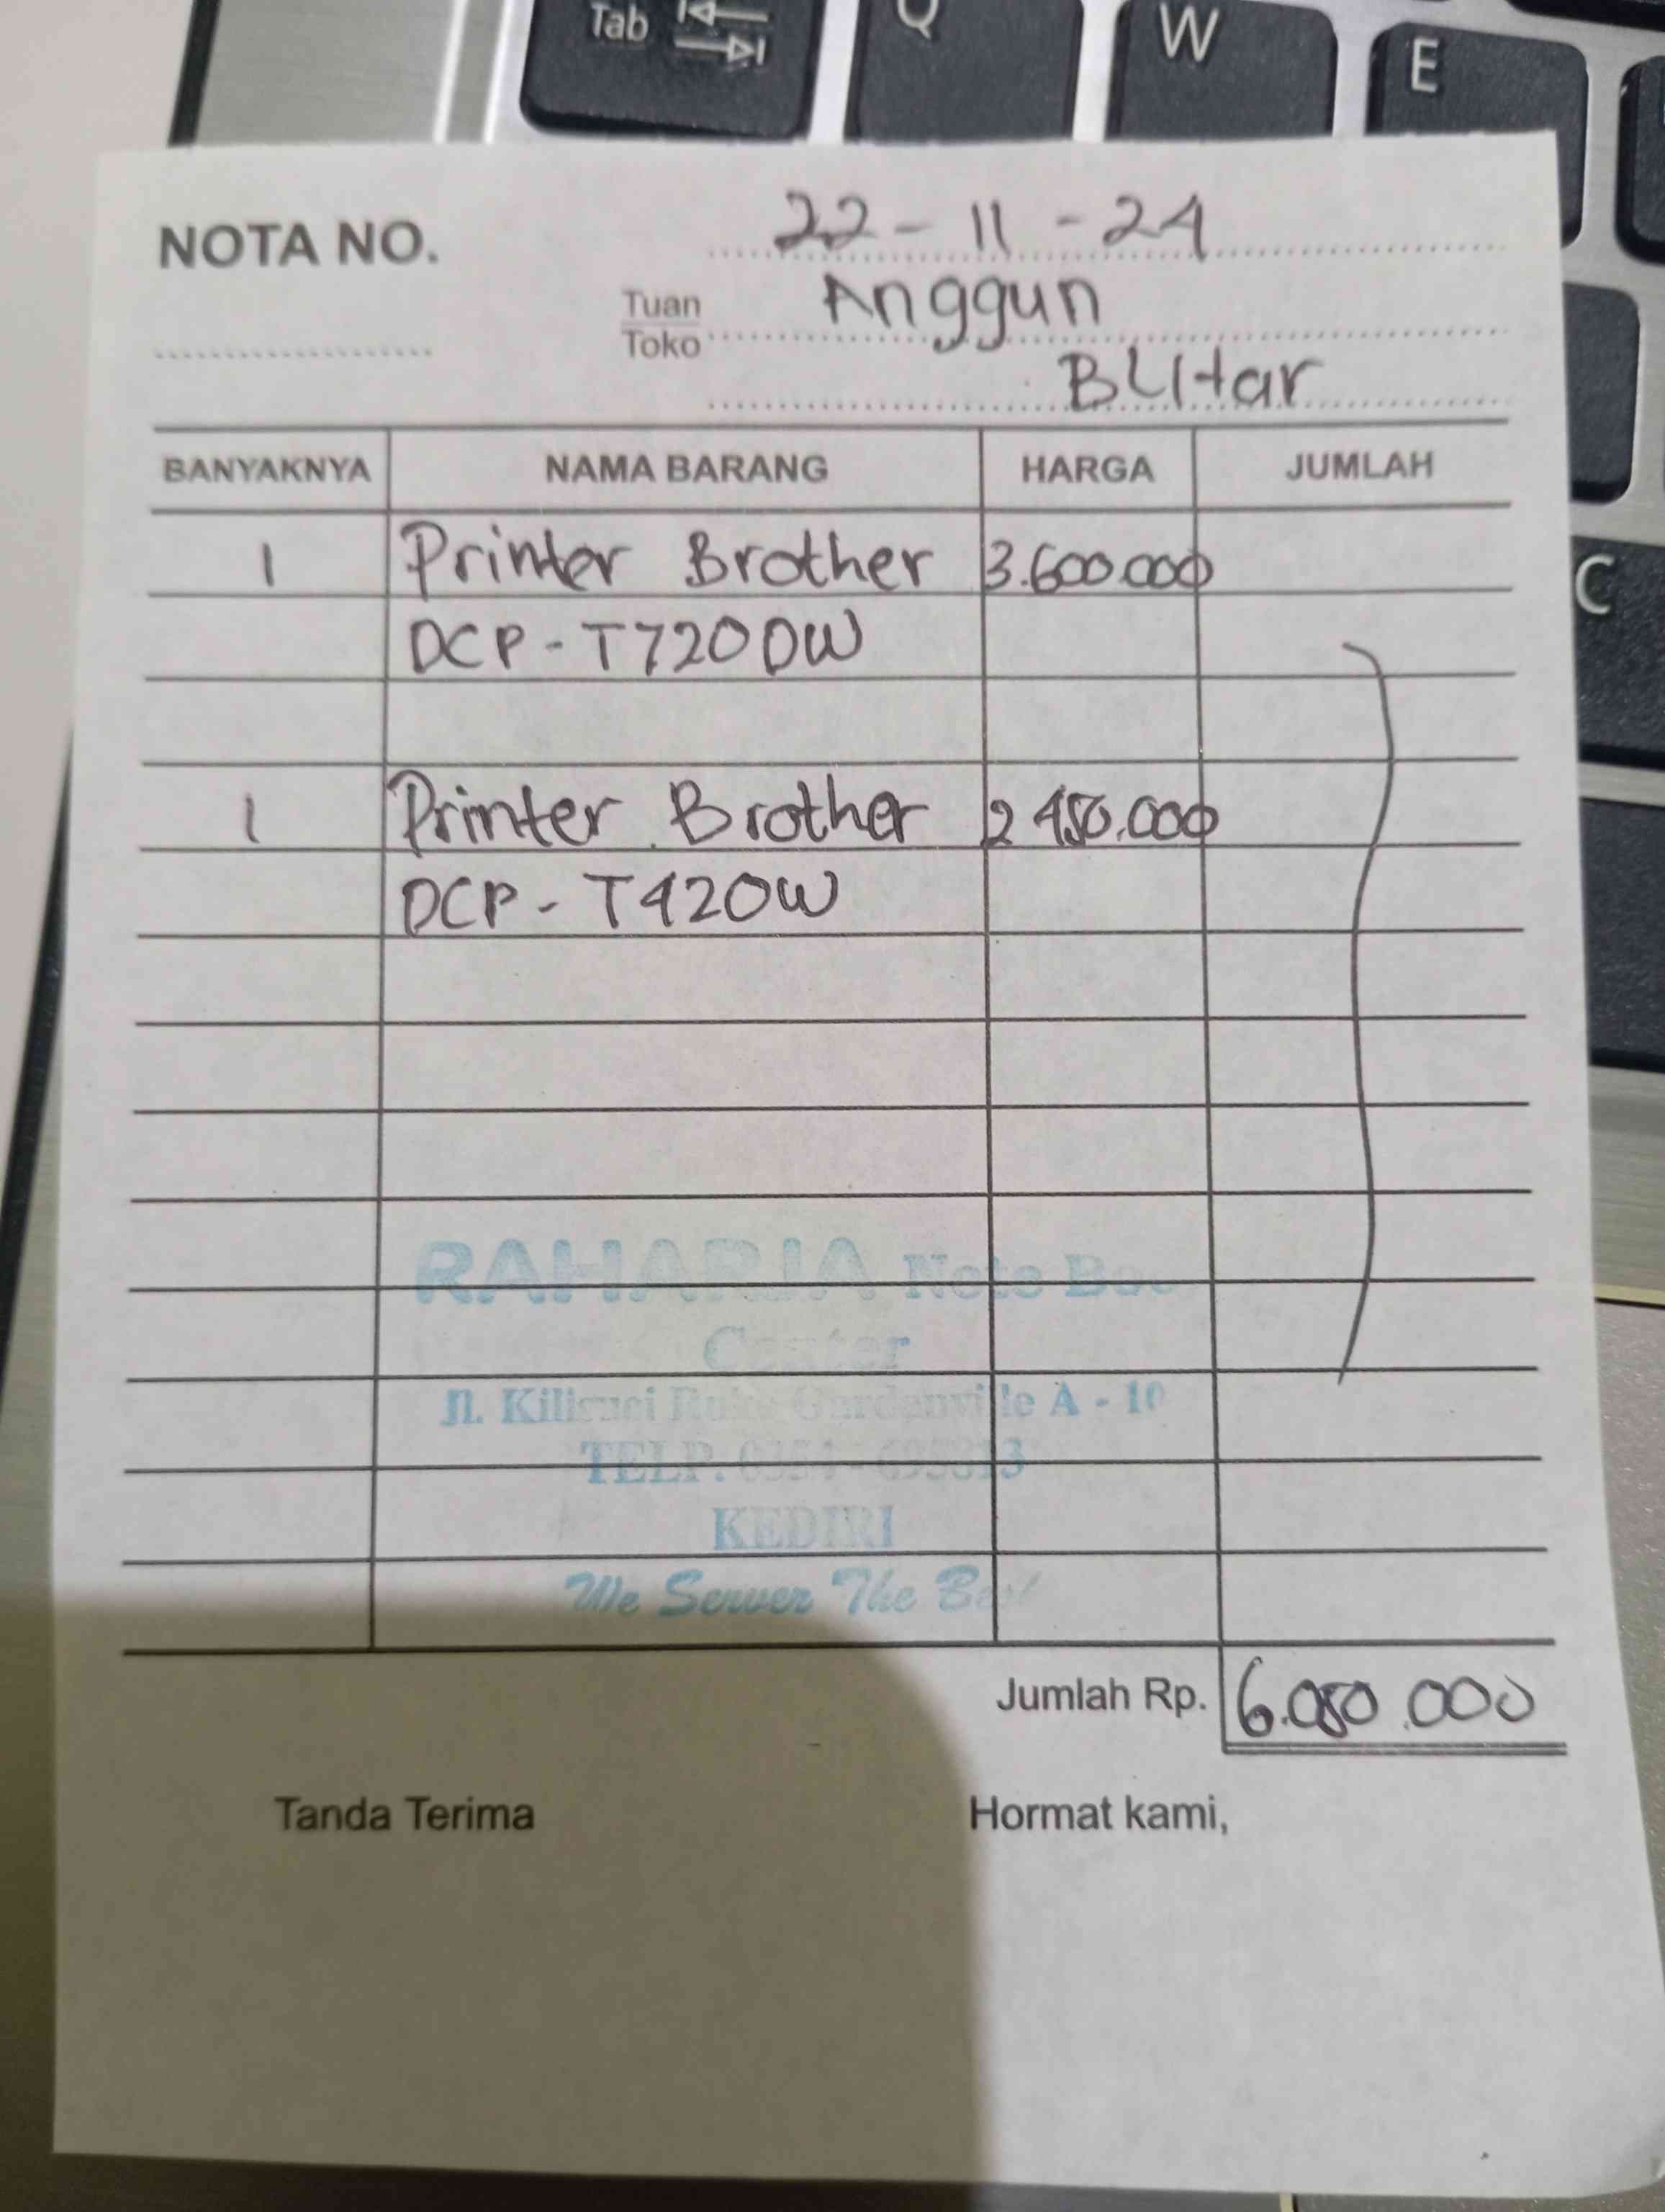 Tab
Q
W
E
C
NOTA NO.
22 - 11 - 24
Tuan
Toko
Anggun
Blitar
BANYAKNYA NAMA BARANG HARGA JUMLAH
1 Printer Brother 3.600.000
DCP - T720DW
1 Printer Brother 2 450.000
DCP - T420W
RAHARJA Note Boo
Center
Jl. Kilisuci Ruko Gardenville A - 10
TELP. 0354 -
KEDIRI
We Server The Best
Jumlah Rp. 6.050.000
Tanda Terima Hormat kami,